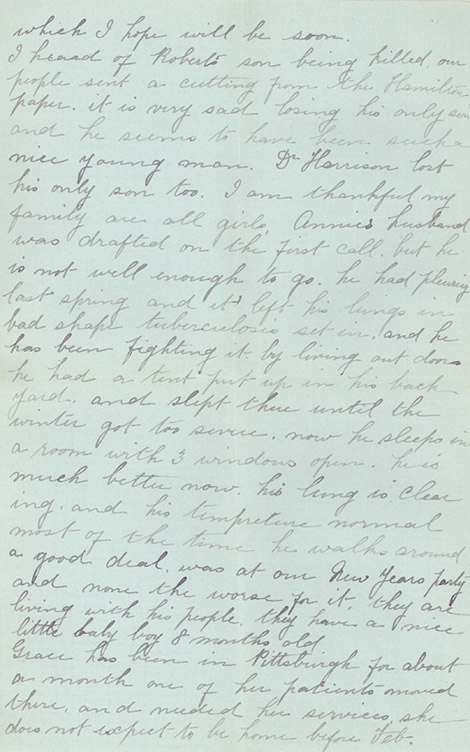 which I hope will be soon.
I heard of Roberts son being killed. our
people sent a cutting from the Hamilton
paper. it is very sad losing his only son
and he seems to have been such a
nice young man. Dr Harrison lost
his only son too. I am thankful my
family are all girls. Annie's husband
was drafted on the first call. but he
is not well enough to go. he had pleurisy
last spring and it left his lungs in
bad shape tuberculosis set in. and he
has been fighting it by living out doors
he had a tent put up in his back
yard. and slept there until the
winter got too severe. now he sleeps in
a room with 3 windows open. he is
much better now. his lung is clear
ing. and his tempreture normal
most of the time he walks around
a good deal. was at our New Years party
and none the worse for it. they are
living with his people. they have a nice
little baby boy 8 months old
Grace has been in Pittsburgh for about
a month one of her patients moved
there. and needed her services, she
does not expect to be home before Feb.